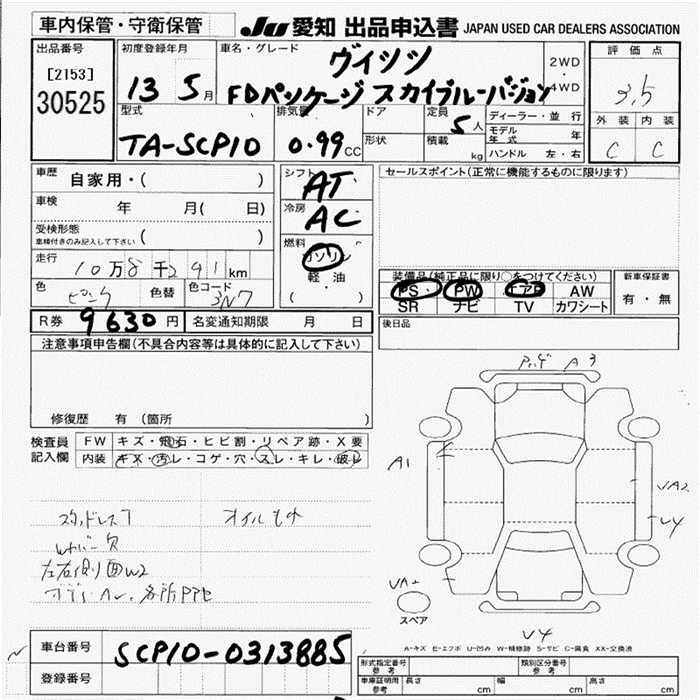 車内保管・守衛保管
Ju 愛知 出品申込書 JAPAN USED CAR DEALERS ASSOCIATION
出品番号
[2153]
30525
初度登録年月
13 5月
車名・グレード
ヴィッツ
FDパッケージ スカイブルーバージョン
2WD
・
4WD
評価点
3.5
外装 内装
C C
型式
TA-SCP10
排気量
0.99 CC
ドア
形状
定員
5人
積載
kg
ディーラー・並行
モデル年式 年
ハンドル 左・右
車歴
自家用・( )
車検
年 月( 日)
受検形態
車検付きのみ記入して下さい ( )
走行
10万8千291km
色
ピンク
色替
色コード
3N7
シフト
AT
冷房
AC
燃料
ガソリン
軽油
( )
セールスポイント(正常に機能するものに限ります)
装備品(純正品に限り○をつけてください)
PS・ PW エアB AW
SR ナビ TV カワシート
新車保証書
有・無
R券 9630円
名変通知期限 月 日
後日品
注意事項申告欄(不具合内容等は具体的に記入して下さい)
修復歴 有 (箇所 )
検査員記入欄
FW キズ・飛石・ヒビ割・リペア跡・X要
内装 キズ・汚レ・コゲ・穴・スレ・キレ・破レ
A3
A1
UA2
U4
UA2
スペア
U4
スタッドレス7
オイルモレ
左右側面W2
A-キズ E-エクボ U-凹み W-補修跡 S-サビ C-腐食 XX-交換済
車台番号
SCP10-0313885
登録番号
形式指定番号
参考
類別区分番号
参考
車庫証明用
参考
長さ cm 幅 cm 高さ cm